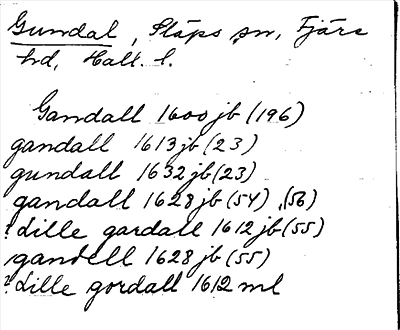 Gundal, Släps sn, Fjäre
hd, Hall. l.
Gandall 1600 jb (196)
gandall 1613 jb (23)
gundall 1632 jb (23)
gandall 1628 jb (54), (56)
? Lille gardall 1612 jb (55)
gandell 1628 jb (55)
? Lille gordall 1612 ml